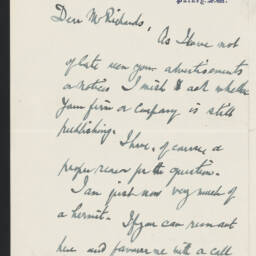 Putney, S.W.
Dear Mr Richards,
As I have not
of late seen your advertisements
or notices I wish to ask whether
your firm or company is still
publishing.
I have, of course, a
proper reason for the question.
I am just now very much of
a hermit. If you can run out
here and favour me with a call